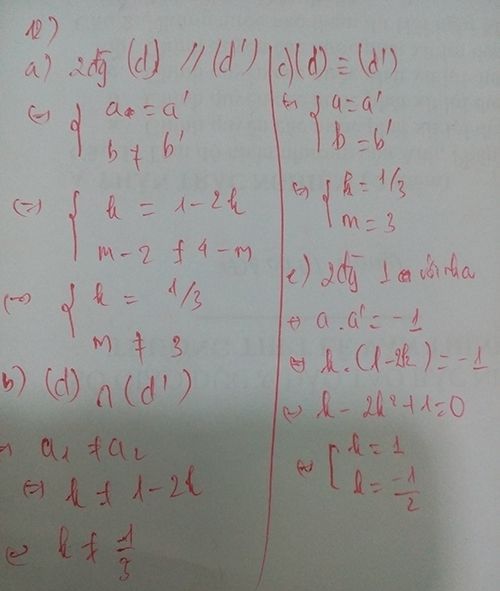 12)
a) 2đg (d) // (d')
(=) { a = a'
b ≠ b'
(=) { k = 1 - 2k
m - 2 ≠ 4 - m
(=) { k = 1/3
m ≠ 3
b) (d) ∩ (d')
a₁ ≠ a₂
(=) k ≠ 1 - 2k
k ≠ 1/3
c) (d) ≡ (d')
{ a = a'
b = b'
{ k = 1/3
m = 3
e) 2đg
a . a' = -1
k . (1 - 2k) = -1
k - 2k² + 1 = 0
[ k = 1
k = -1/2